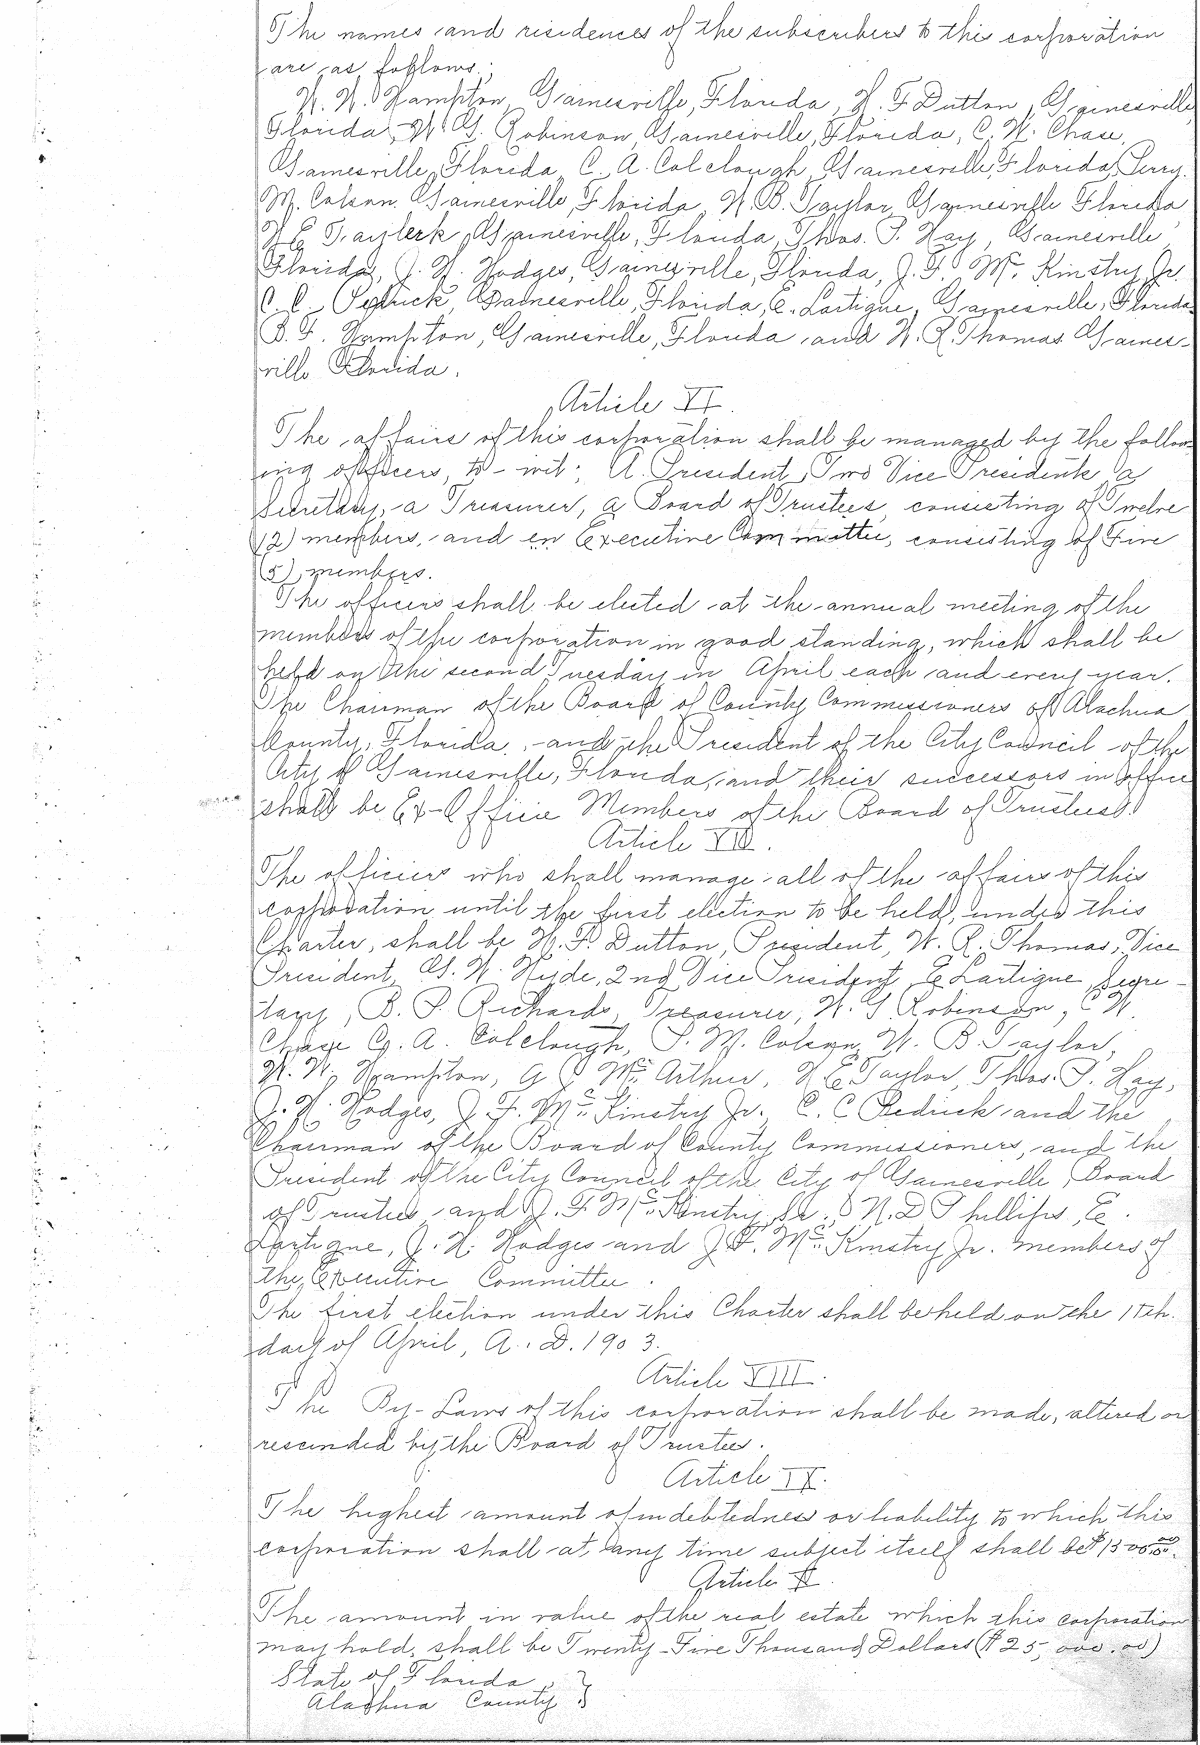 The names and residences of the subscribers to this corporation
are as follows:
W. W. Hampton, Gainesville, Florida, H. F. Dutton, Gainesville
Florida, W. G. Robinson, Gainesville, Florida, C. W. Chase,
Gainesville, Florida C. A. Colclough, Gainesville, Florida, Perry
M. Colson, Gainesville, Florida, W. B. Taylor, Gainesville Florida
H E Taylerk, Gainesville, Florida, Thos. P. Kay, Gainesville
Florida, J. H. Hodges, Gainesville, Florida, J. F. Mc. Kinstry, Jr.
C. C. Pedrick, Gainesville, Florida, E. Lartigue, Gainesville, Florida
B. F. Hampton, Gainesville, Florida and W. R. Thomas Gaines-
ville Florida.
Article VI.
The affairs of this corporation shall be managed by the follow-
ing officers, to-wit; A. President, Two Vice Presidents, a
Secretary, a Treasurer, a Board of Trustees, consisting of Twelve
(12) members, and en Executive Committee, consisting of Five
(5), members.
The officers shall be elected at the annual meeting of the
members of the corporation in good standing, which shall be
held on the second Tuesday in April each and every year.
The Chairman of the Board of County Commissioners of Alachua
County, Florida, and the President of the City Council of the
City of Gainesville, Florida, and their successors in office
shall be Ex-Officio Members of the Board of Trustees.
Article VII.
The officers who shall manage all of the affairs of this
corporation until the first election to be held, under this
Charter, shall be H. F. Dutton, President, W. R. Thomas, Vice
President, G. W. Hyde, 2nd Vice President, E Lartigue, Secre-
tary, B. P. Richards, Treasurer, W. G Robinson, C W.
Chase C. A. Colclough, P. M. Colson, W. B. Taylor,
W. W. Hampton, Mc. Arthur, H E Taylor, Thos. P. Kay,
J. H. Hodges, J. F. Mc. Kinstry Jr., C. C Pedrick and the
Chairman of the Board of County Commissioners, and the
President of the City Council of the City of Gainesville, Board
of Trustees, and J. F Mc. Kinstry, Sr., N. D Phillips, E.
Lartigue, J. H. Hodges and J. F. Mc. Kinstry Jr. members of
the Executive Committee.
The first election under this Charter shall be held on the
day of April, A. D. 1903.
Article VIII.
The By-Laws of this corporation shall be made, altered or
rescinded by the Board of Trustees.
Article IX.
The highest amount of indebtedness or liability to which this
corporation shall at any time subject itself shall be
Article X.
The amount in value of the real estate which this corporation
may hold, shall be Twenty-Five Thousand Dollars ($25,000.00)
State of Florida,
Alachua County